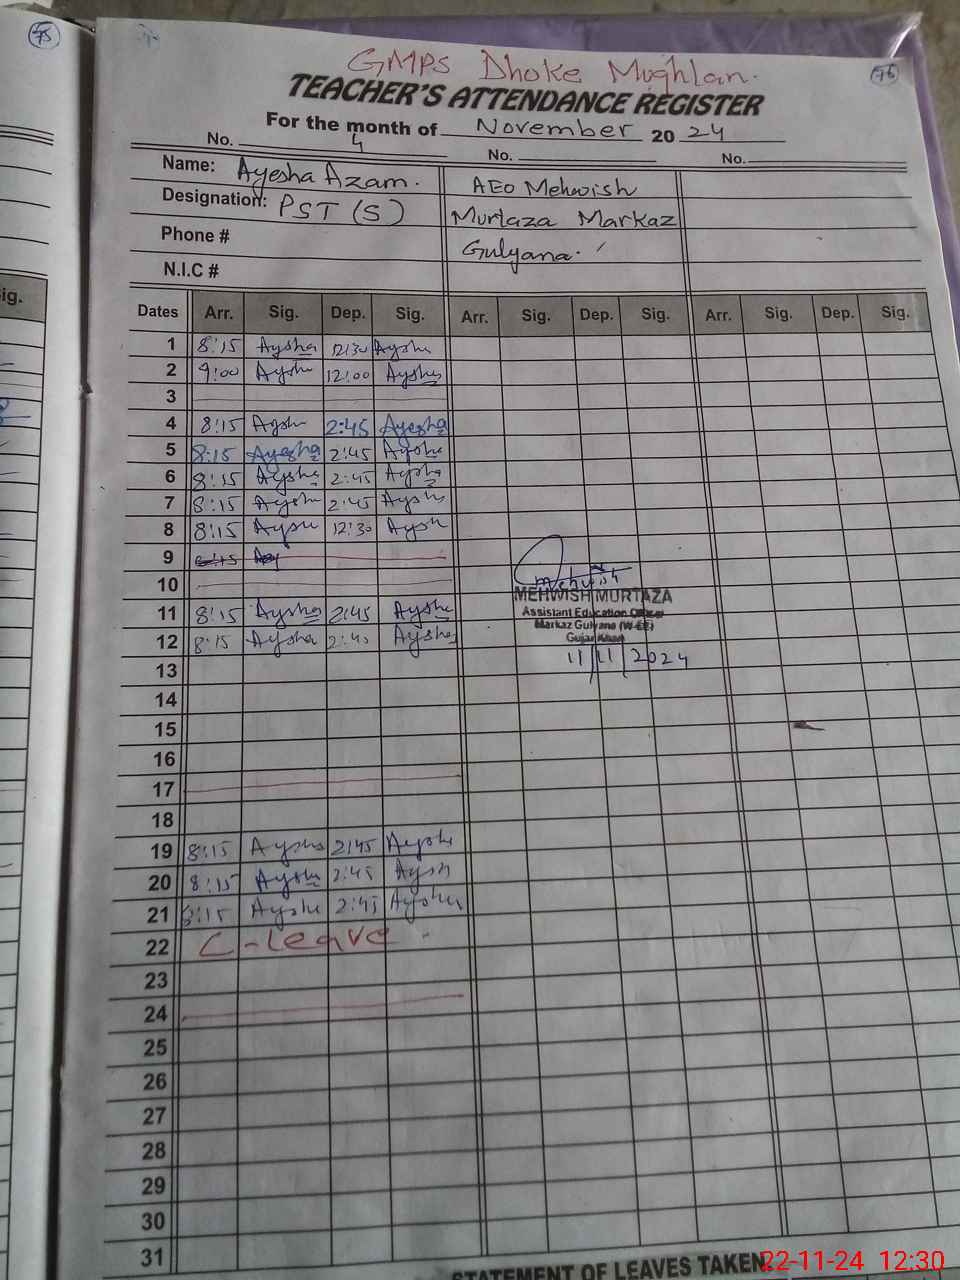 75
76
GMPS Dhoke Mughlan.
TEACHER'S ATTENDANCE REGISTER
For the month of November 2024
No. 4 No. No.
Name: Ayesha Azam. AEO Mehwish
Designation: PST (S) Murtaza Markaz
Phone # Gulyana.
N.I.C #
ig.
Dates Arr. Sig. Dep. Sig. Arr. Sig. Dep. Sig. Arr. Sig. Dep. Sig.
1 8:15 Aysha 12:30 Aysha
2 9:00 Aysha 12:00 Aysha
3
4 8:15 Aysha 2:45 Ayesha
5 8:15 Ayesha 2:45 Aysha
6 8:15 Aysha 2:45 Aysha
7 8:15 Aysha 2:45 Aysha
8 8:15 Aysha 12:30 Aysha
9 8:15
10
Mehwish
MEHWISH MURTAZA
11 8:15 Aysha 2:45 Aysha Assistant Education Officer
Markaz Gulyana (W-EE)
12 8:15 Aysha 2:45 Aysha Gujar Khan
13 11/11/2024
14
15
16
17
18
19 8:15 Aysha 2:45 Aysha
20 8:15 Aysha 2:45 Aysh
21 8:15 Aysha 2:45 Aysha
22 C-Leave
23
24
25
26
27
28
29
30
31
STATEMENT OF LEAVES TAKEN
22-11-24 12:30